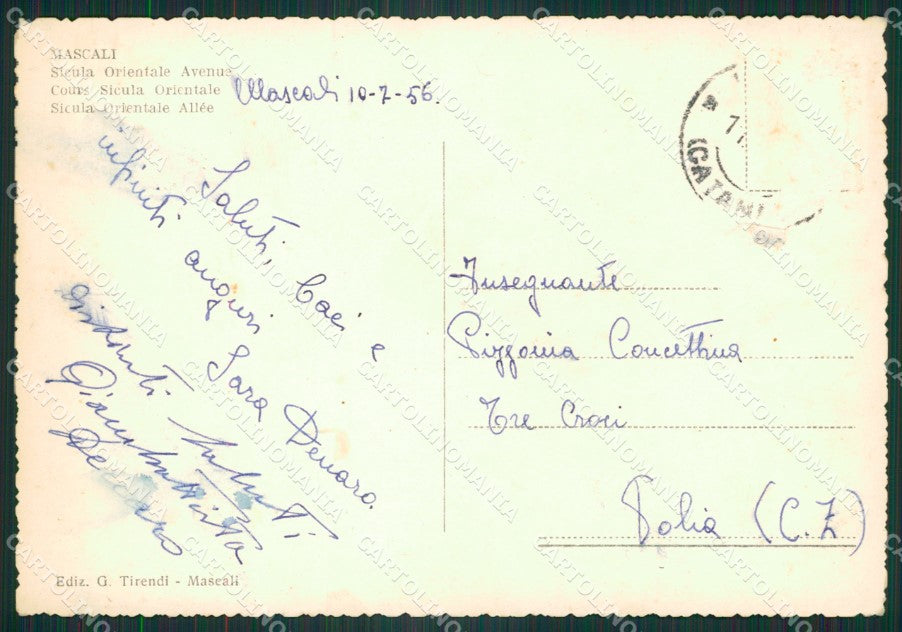 MASCALI
Sicula Orientale Avenue
Cours Sicula Orientale
Sicula Orientale Allée
Mascali 10-7-56.
Saluti, Baci e
infiniti auguri Sara Denaro.
distinti saluti
Giambattista
De
Insegnante
Pizzonia Concettina
Tre Croci
Polia (C.Z)
(CATANI
Ediz. G. Tirendi - Mascali
CARTOLINOMANIA